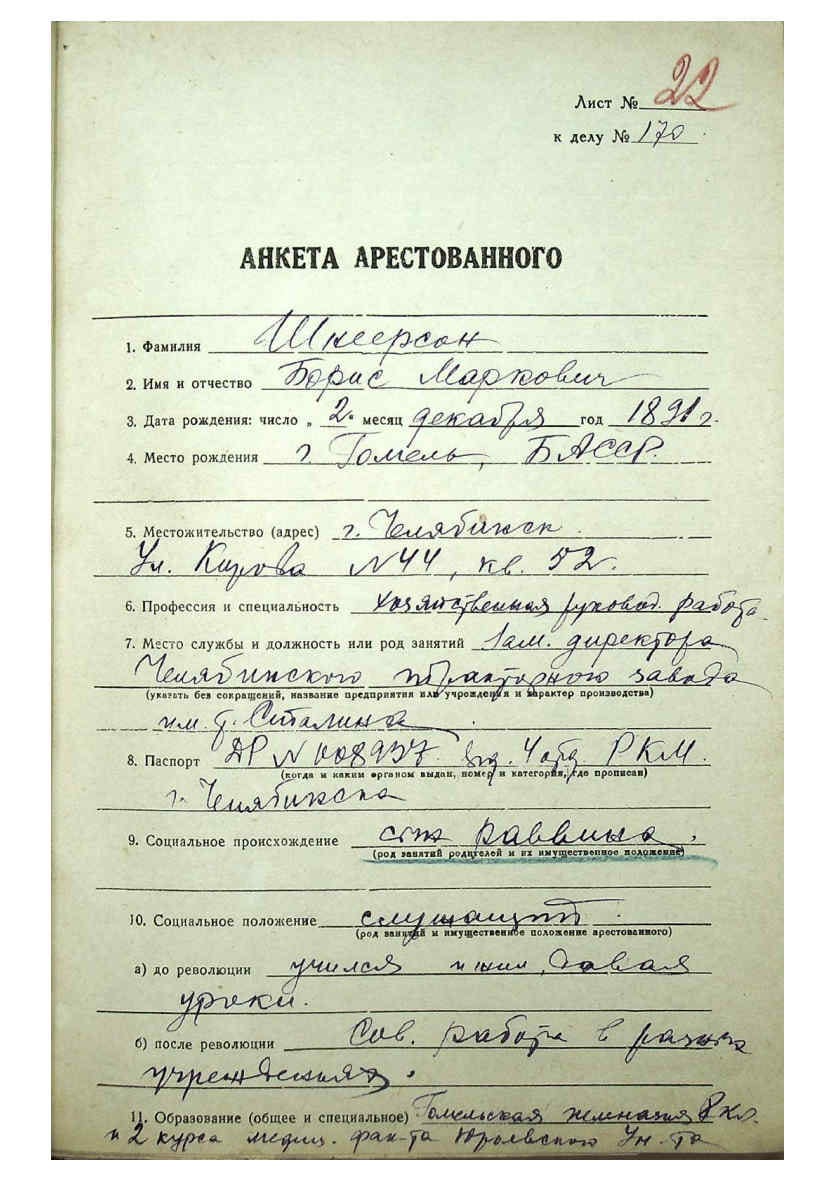 Лист № 22
к делу № 170.
АНКЕТА АРЕСТОВАННОГО
1. Фамилия Шнеерсон
2. Имя и отчество Борис Маркович
3. Дата рождения: число „ 2. месяц декабря год 1891 г.
4. Место рождения г. Гомель, БАССР.
5. Местожительство (адрес) г. Челябинск.
Ул. Кирова № 44, кв. 52.
6. Профессия и специальность хозяйственная руковод. работа.
7. Место службы и должность или род занятий Зам. директора
Челябинского тракторного завода
(указать без сокращений, название предприятия или учреждения и характер производства)
им. т. Сталина.
8. Паспорт № 008937. выд. 4 отд. РКМ.
(когда и каким органом выдан, номер и категория, где прописан)
г. Челябинска
9. Социальное происхождение сын раввина.
(род занятий родителей и их имущественное положение)
10. Социальное положение служащий.
(род занятий и имущественное положение арестованного)
а) до революции учился и жил, давая
уроки.
б) после революции Сов. работа в разных
учреждениях.
11. Образование (общее и специальное) Гомельская гимназия 8 кл.
и 2 курса медиц. фак-та Юрьевского Ун-та